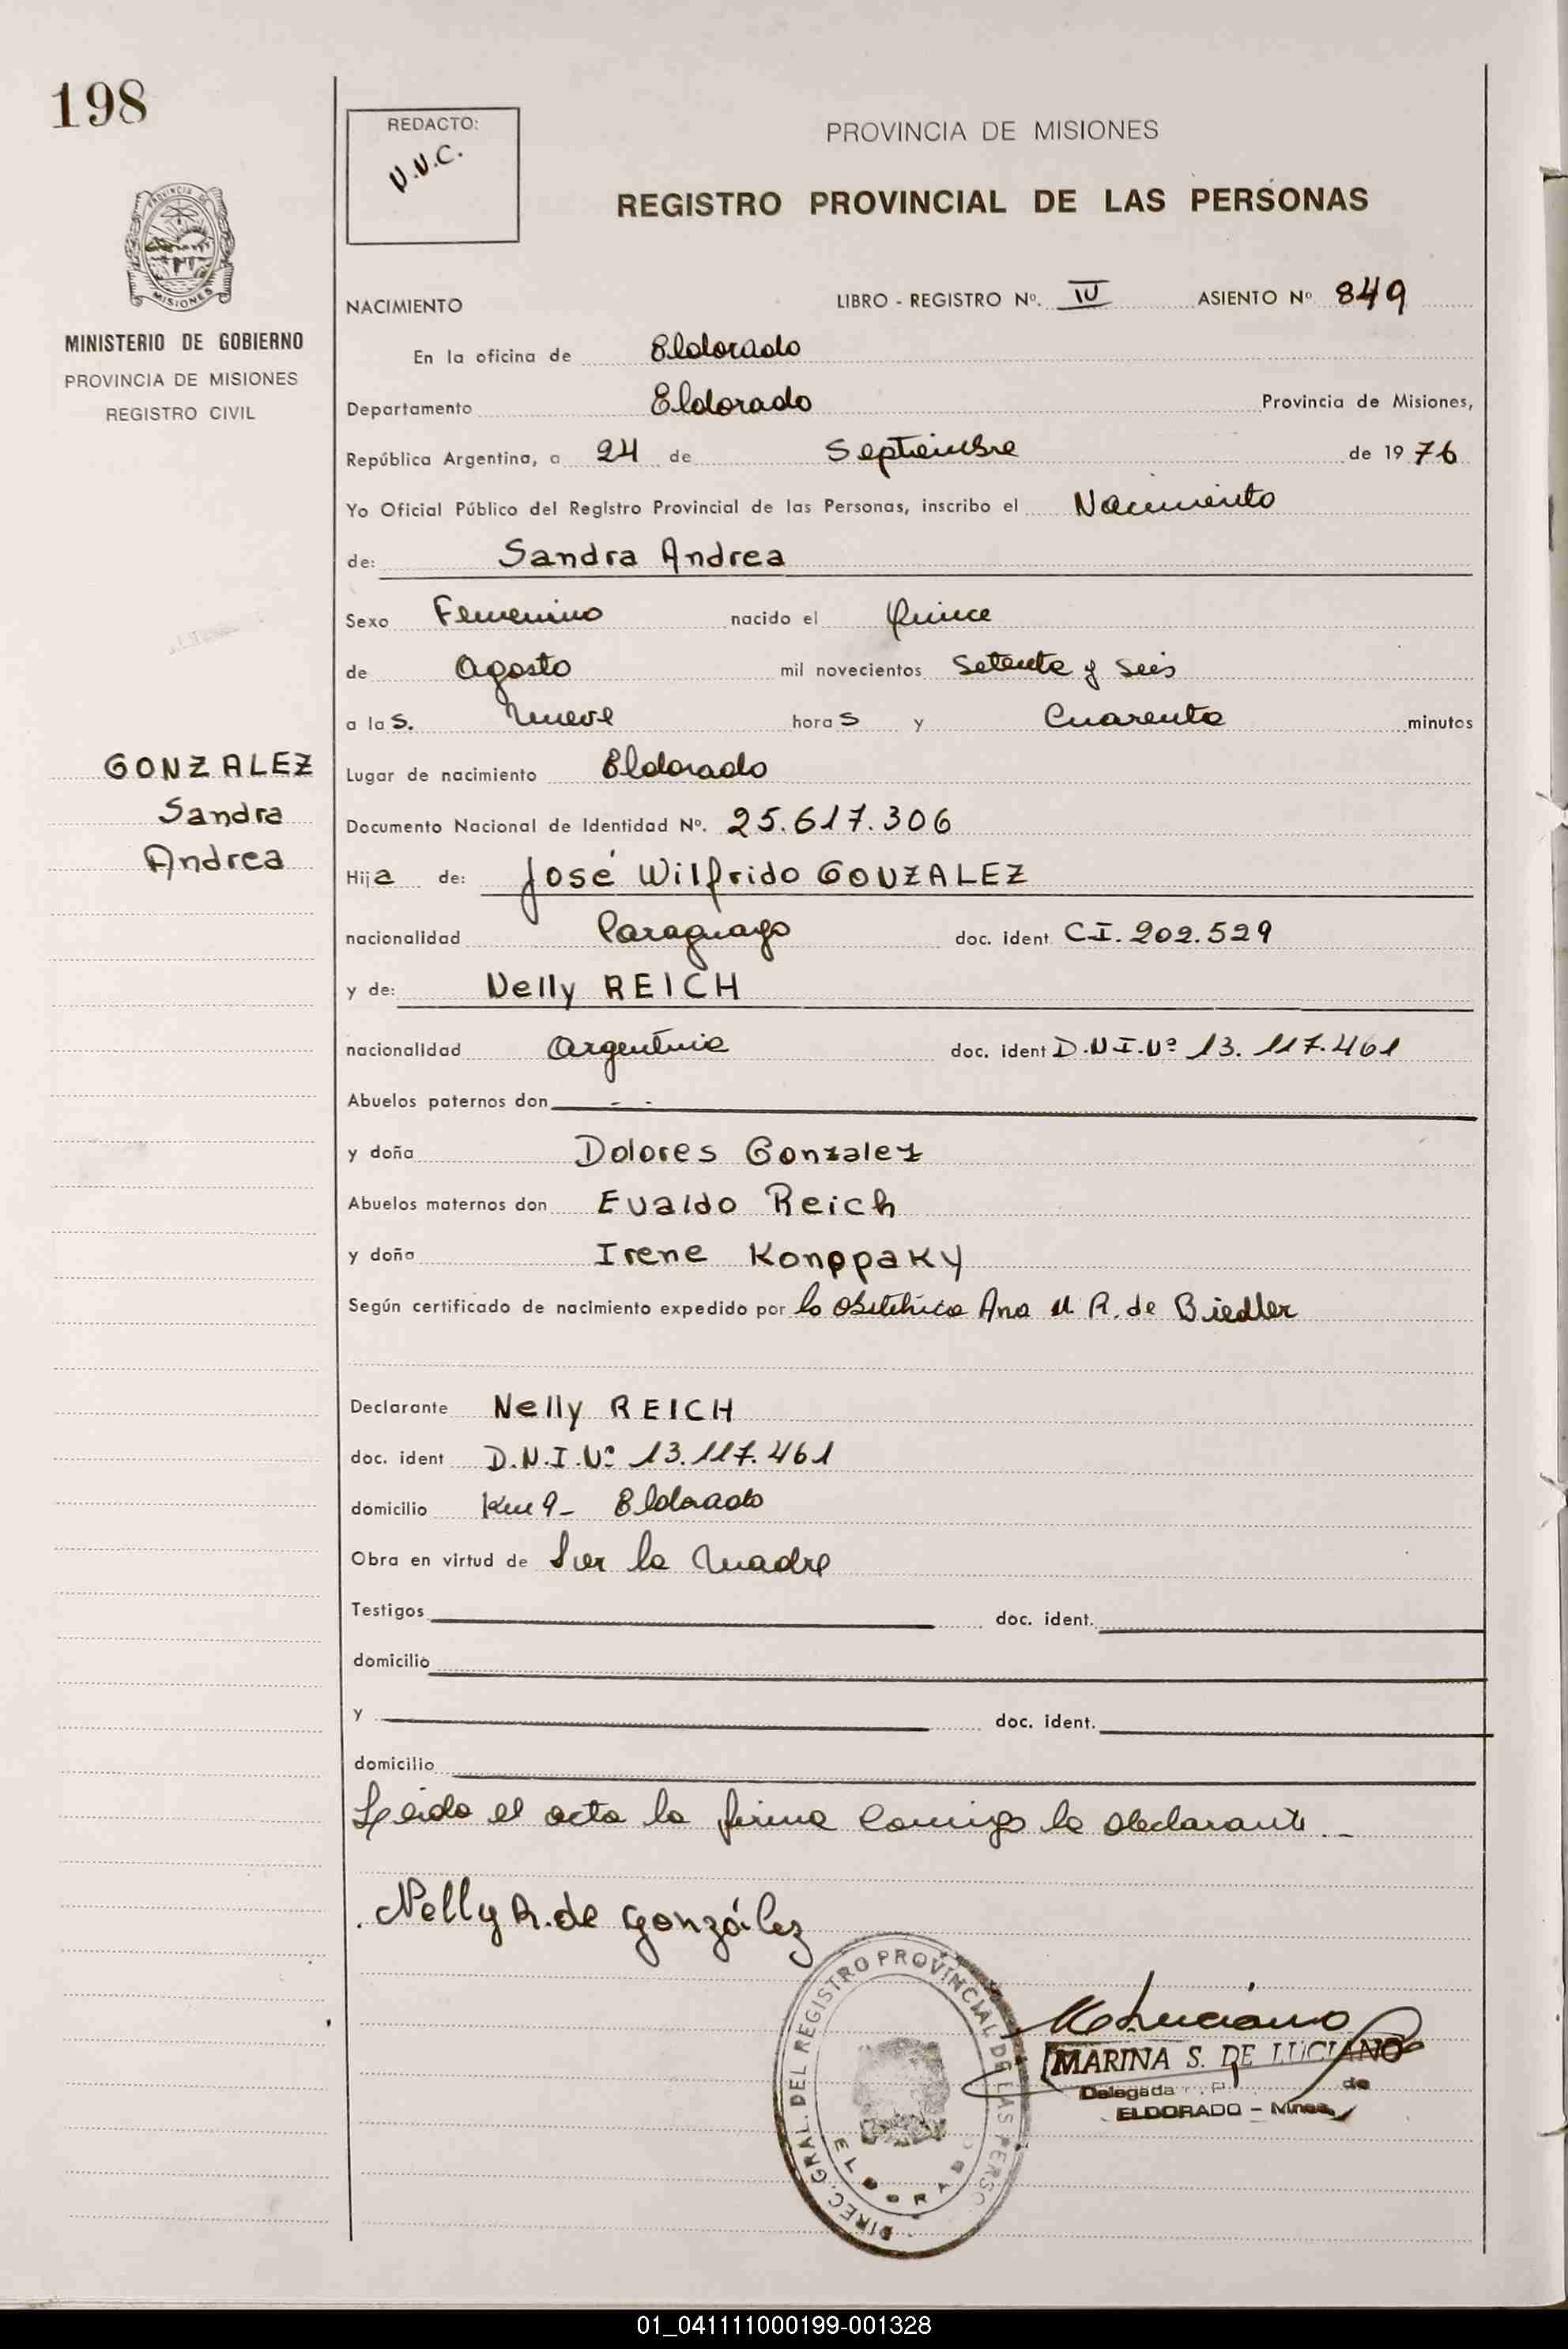 198
REDACTO:
N.N.C.
PROVINCIA DE MISIONES
REGISTRO PROVINCIAL DE LAS PERSONAS
PROVINCIA DE
MISIONES
MINISTERIO DE GOBIERNO
PROVINCIA DE MISIONES
REGISTRO CIVIL
NACIMIENTO LIBRO - REGISTRO Nº. IV ASIENTO Nº 849
En la oficina de Eldorado
Departamento Eldorado Provincia de Misiones,
República Argentina, a 24 de Septiembre de 1976
Yo Oficial Público del Registro Provincial de las Personas, inscribo el Nacimiento
de: Sandra Andrea
Sexo Femenino nacido el Quince
de Agosto mil novecientos Setenta y Seis
a las. Nueve horas y Cuarenta minutos
GONZALEZ
Sandra
Andrea
Lugar de nacimiento Eldorado
Documento Nacional de Identidad Nº. 25.617.306
Hija de: José Wilfrido GONZALEZ
nacionalidad Paraguayo doc. ident. C.I. 202.529
y de: Nelly REICH
nacionalidad Argentina doc. ident D.N.I.Nº 13.117.461
Abuelos paternos don - -
y doña Dolores Gonzalez
Abuelos maternos don Evaldo Reich
y doña Irene Konppaky
Según certificado de nacimiento expedido por la Obstétrica Ana M. R. de Biedler
Declarante Nelly REICH
doc. ident D.N.I.Nº 13.117.461
domicilio Km 9- Eldorado
Obra en virtud de Ser la Madre
Testigos doc. ident.
domicilio
y doc. ident.
domicilio
Leida el acta la firma Conmigo la declarante.-
Nelly R. de González
DIREC. GRAL. DEL REGISTRO PROVINCIAL DE LAS PERSO
ELDORADO
M de Luciano
MARINA S. DE LUCIANO
Delegada de
ELDORADO - Mnes.
01_041111000199-001328